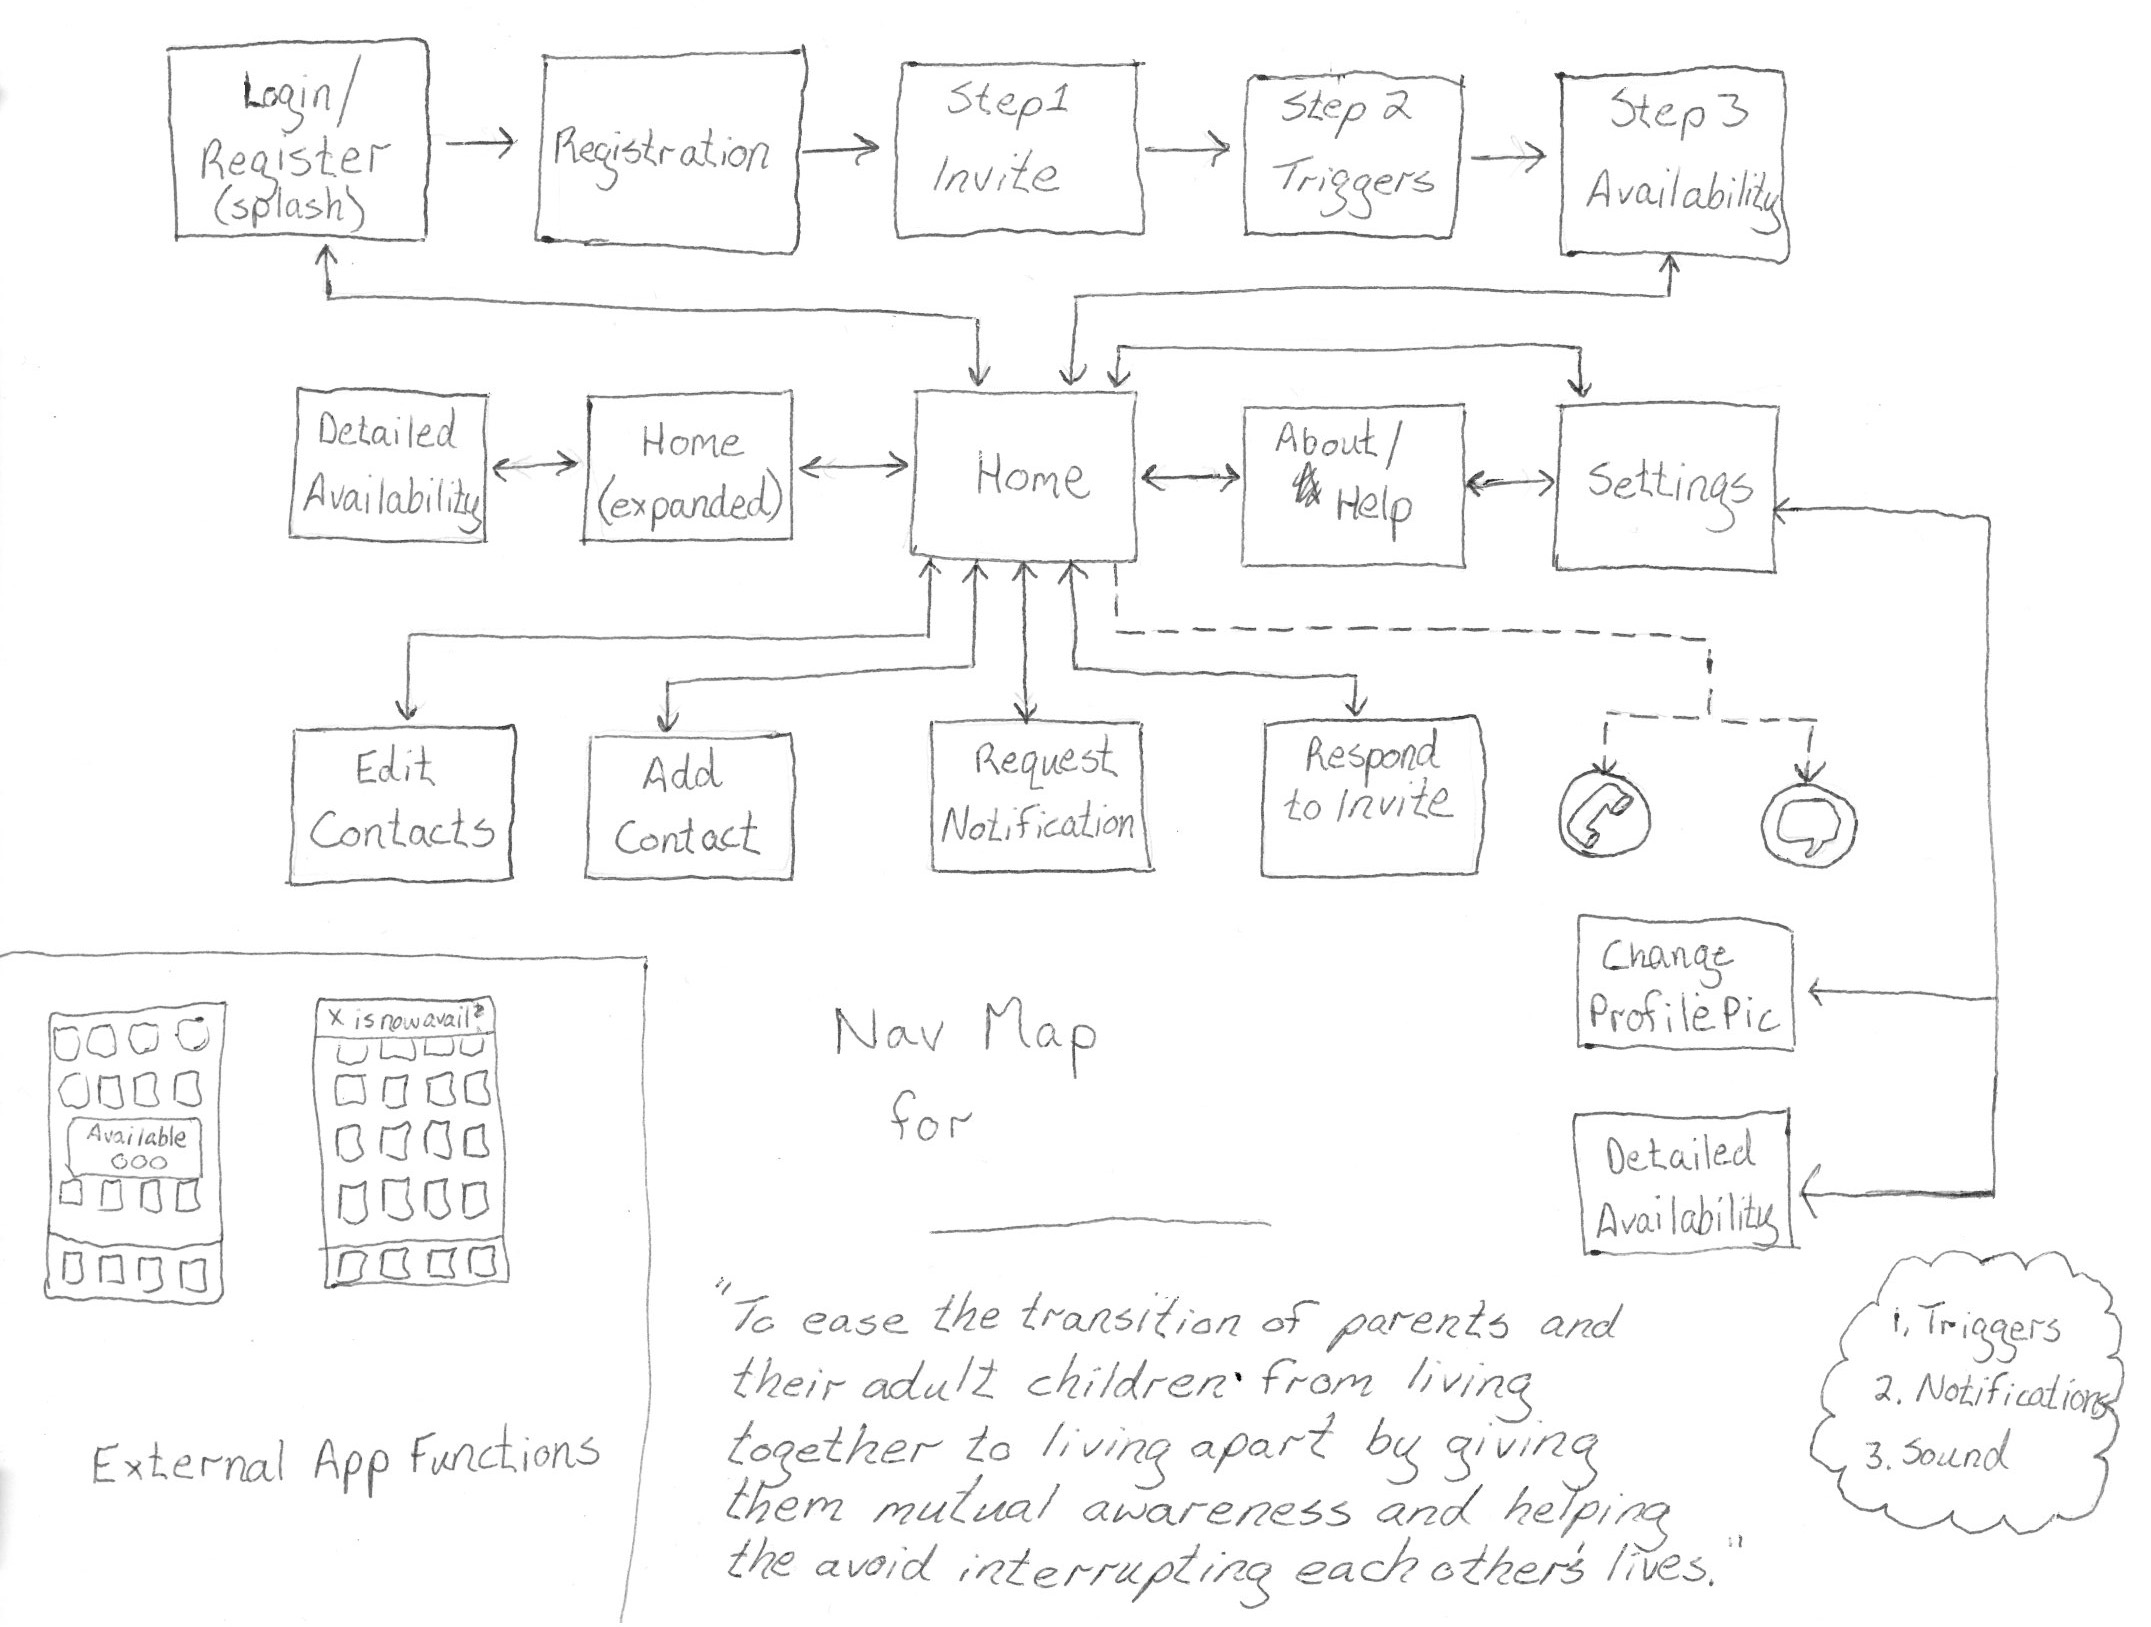 Login/
Register
(splash)
Registration
Step1
Invite
Step 2
Triggers
Step 3
Availability
Detailed
Availability
Home
(expanded)
Home
About/
Help
Settings
Edit
Contacts
Add
Contact
Request
Notification
Respond
to Invite
Change
Profile Pic
Detailed
Availability
1. Triggers
2. Notifications
3. Sound
Available
X is now avail
External App Functions
Nav Map
for
"To ease the transition of parents and
their adult children from living
together to living apart by giving
them mutual awareness and helping
the avoid interrupting each other's lives."